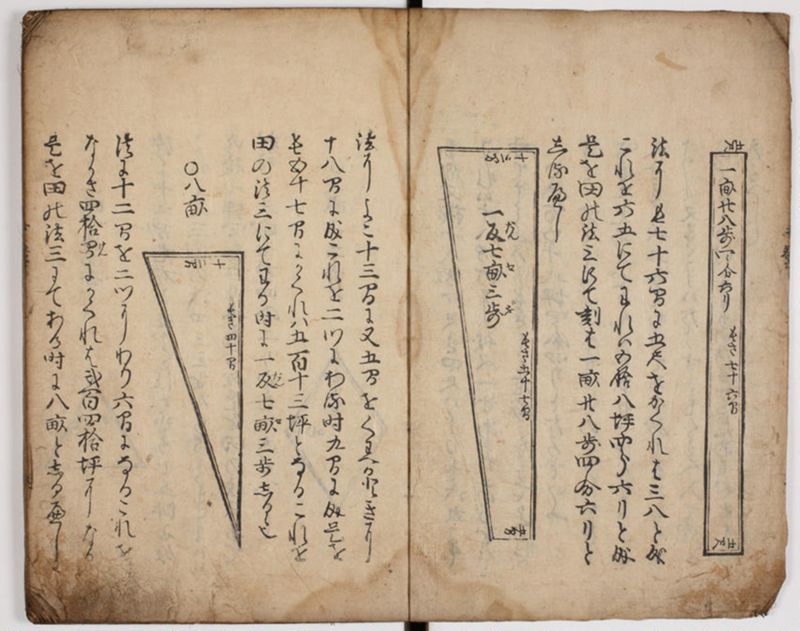 五尺
一畝廿八歩四分六り
ながさ七十六間
五尺
法に長七十六間に五尺をかくれは三八と成
これを六五にてわれは五拾八坪四分六りと成
是を田の法三にて割は一畝廿八歩四分六りと
しるへし
十三間
一反七畝三歩
ながさ五十七間
五間
法に よこ十三間に又五間をくわへ
十八間に成これを二つにわる時九間に成是を
長五十七間にかくれは五百十三坪となるこれを
田の法三にてわる時に一反七畝三歩しるゝ也
〇八畝
十二間
ながさ四十間
法に十二間を二ツにわり六間になるこれを
ながさ四拾間にかくれは弐百四拾坪になる
是を田の法三にてわる時に八畝としるへし